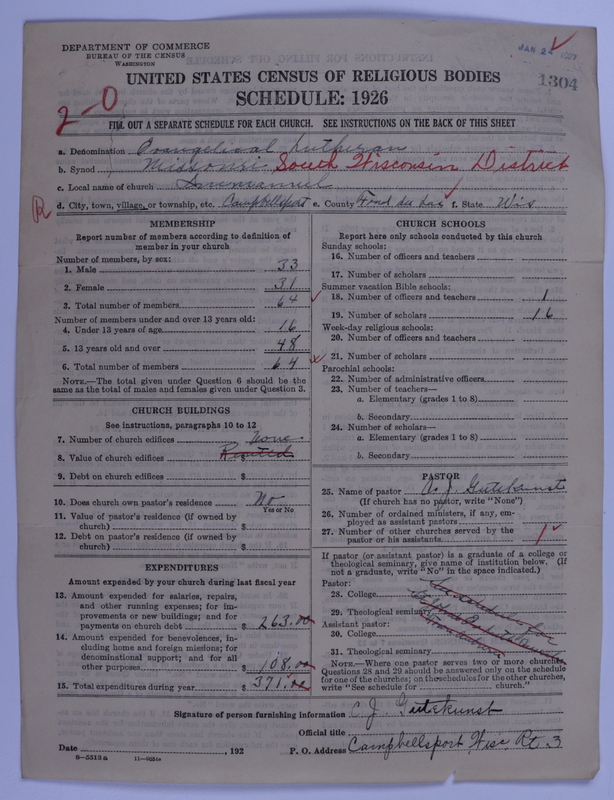 DEPARTMENT OF COMMERCE
BUREAU OF THE CENSUS
WASHINGTON
1304
UNITED STATES CENSUS OF RELIGIOUS BODIES
SCHEDULE: 1926
2-0
FILL OUT A SEPARATE SCHEDULE FOR EACH CHURCH. SEE INSTRUCTIONS ON THE BACK OF THIS SHEET
a. Denomination Evangelical Lutheran
b. Synod Missouri South Wisconsin District
c. Local name of church Immanuel
d. City, town, village, or township, etc. Campbellsport e. County Fond du Lac f. State Wis
MEMBERSHIP
Report number of members according to definition of member in your church
Number of members, by sex:
1. Male 33
2. Female 31
3. Total number of members 64
Number of members under and over 13 years old:
4. Under 13 years of age 16
5. 13 years old and over 48
6. Total number of members 64
NOTE.—The total given under Question 6 should be the
same as the total of males and females given under Question 3.
CHURCH BUILDINGS
See instructions, paragraphs 10 to 12
7. Number of church edifices None
8. Value of church edifices $ Rented
9. Debt on church edifices $
10. Does church own pastor's residence No
Yes or No
11. Value of pastor's residence (if owned by
church) $
12. Debt on pastor's residence (if owned by
church) $
EXPENDITURES
Amount expended by your church during last fiscal year
13. Amount expended for salaries, repairs,
and other running expenses; for im-
provements or new buildings; and for
payments on church debt $ 263.00
14. Amount expended for benevolences, in-
cluding home and foreign missions; for
denominational support; and for all
other purposes 108.00
15. Total expenditures during year $ 371.00
CHURCH SCHOOLS
Report here only schools conducted by this church
Sunday schools:
16. Number of officers and teachers
17. Number of scholars
Summer vacation Bible schools:
18. Number of officers and teachers 1
19. Number of scholars 16
Week-day religious schools:
20. Number of officers and teachers
21. Number of scholars
Parochial schools:
22. Number of administrative officers
23. Number of teachers—
a. Elementary (grades 1 to 8)
b. Secondary
24. Number of scholars—
a. Elementary (grades 1 to 8)
b. Secondary
PASTOR
25. Name of pastor C. J. Gutekunst
(If church has no pastor, write "None")
26. Number of ordained ministers, if any, em-
ployed as assistant pastors
27. Number of other churches served by the
pastor or his assistants 1
If pastor (or assistant pastor) is a graduate of a college or
theological seminary, give name of institution below. (If
not a graduate, write "No" in the space indicated.)
Pastor:
28. College
29. Theological seminary
Assistant pastor:
30. College
31. Theological seminary
NOTE.—Where one pastor serves two or more churches,
Questions 28 and 29 should be answered only on the schedule
for one of the churches; on the schedules for the other churches,
write "See schedule for church."
Signature of person furnishing information C J. Gutekunst
Official title
Date , 192 P. O. Address Campbellsport Wisc. Rt. 3
8-5513a